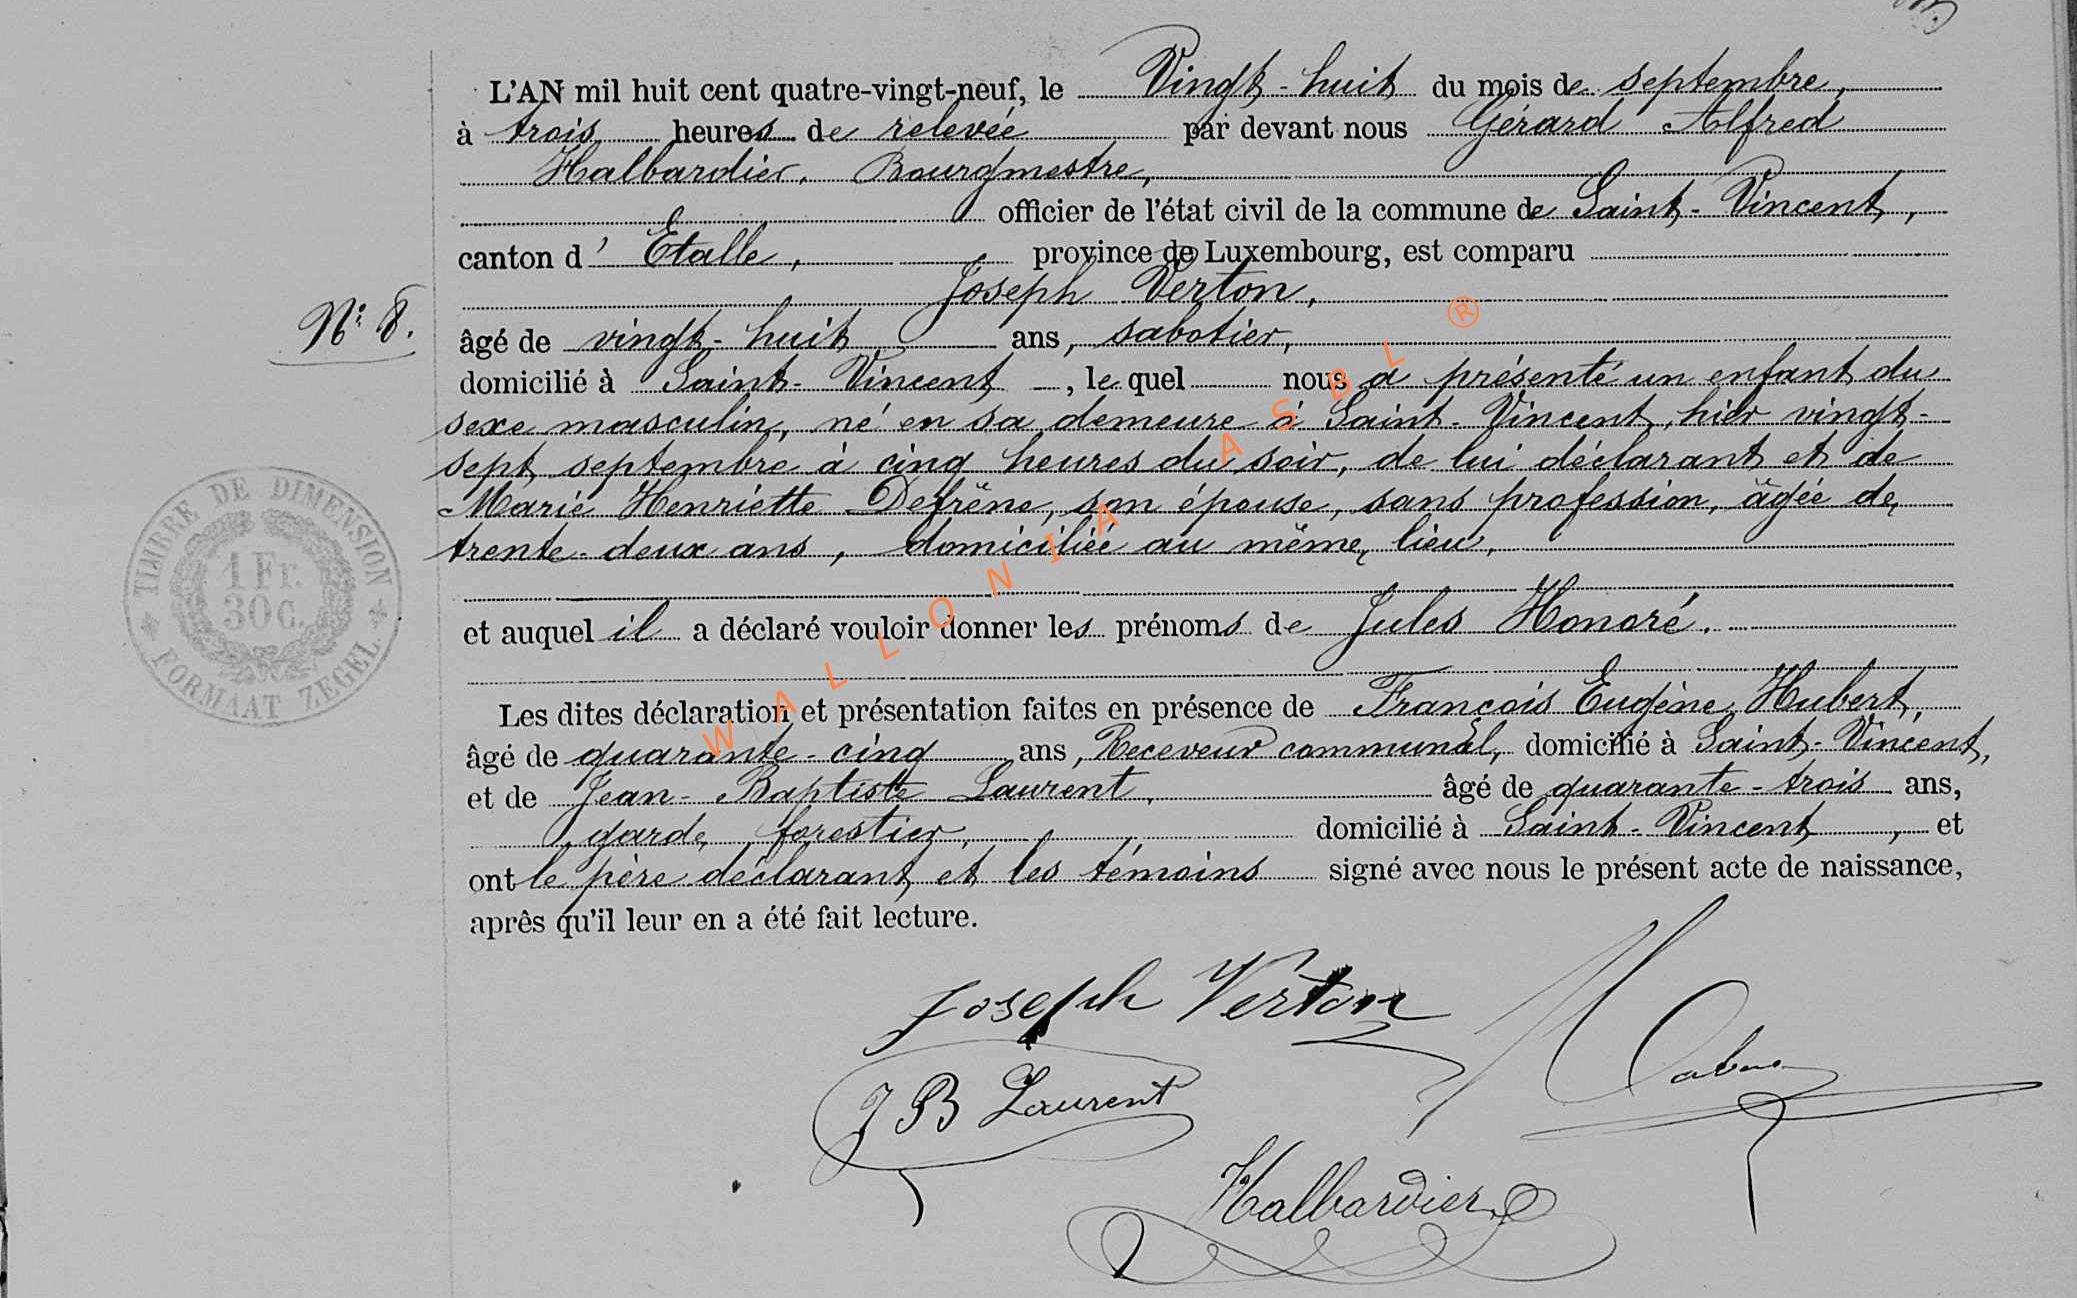 L'AN mil huit cent quatre-vingt-neuf, le Vingt-huit du mois de septembre,
à trois heures de relevée par devant nous Gérard Alfred
Halbardier, Bourgmestre,
officier de l'état civil de la commune de Saint-Vincent,
canton d'Etalle, province de Luxembourg, est comparu
Joseph Verton,
N° 8.
âgé de vingt-huit ans, sabotier,
domicilié à Saint-Vincent, lequel nous a présenté un enfant du
sexe masculin, né en sa demeure à Saint-Vincent, hier vingt-
sept septembre à cinq heures du soir, de lui déclarant et de
Marie Henriette Defrêne, son épouse, sans profession, âgée de
trente-deux ans, domiciliée au même lieu,
et auquel il a déclaré vouloir donner les prénoms de Jules Honoré.
Les dites déclaration et présentation faites en présence de François Eugène Hubert,
âgé de quarante-cinq ans, Receveur communal, domicilié à Saint-Vincent,
et de Jean-Baptiste Laurent, âgé de quarante-trois ans,
garde forestier, domicilié à Saint-Vincent, et
ont le père déclarant et les témoins signé avec nous le présent acte de naissance,
après qu'il leur en a été fait lecture.
Joseph Verton
J B Laurent
Halbardier
TIMBRE DE DIMENSION
1 Fr.
30 C.
FORMAAT ZEGEL
WALLONIA ASBL ®